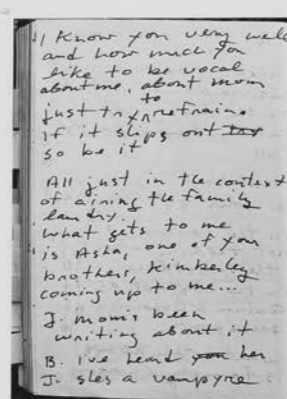 I know you very well
and how much you
like to be vocal
about me, about mom
just try to refrain.
If it slips out try
so be it
All just in the context
of airing the family
laundry.
what gets to me
is Asha, one of your
brothers, Kimberley
coming up to me...
J. mom's been
writing about it
B. I've heard you her
J. she's a vampyre